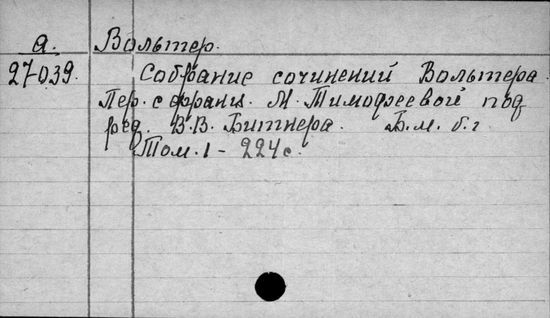 а. Вольтер.
27039. Собрание сочинений Вольтера.
Пер. с франц. М. Тимофеевой под
ред. В.В. Битнера. Б.м. б.г.
Том. 1 - 224 с.